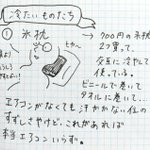 冷たいものたち
① 氷枕
ヒヤ〜
→ 900円の氷枕
2つ買って、
交互に冷やして
使っている。
ビニールで巻いて…
タオルに巻いて…
エアコンがなくても汗かかない位の
すずしさやけど、これがあれば
本当エアコンいらず。